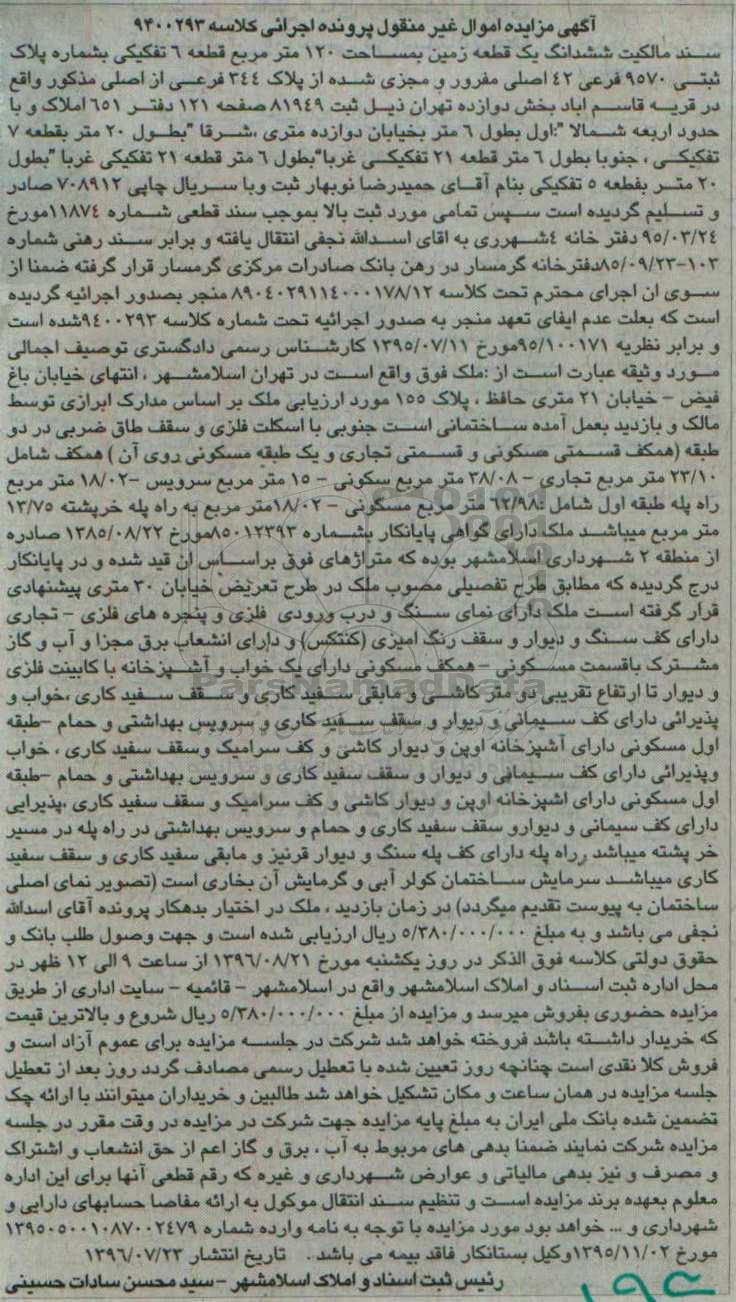 آگهی مزایده اموال غیر منقول پرونده اجرائی کلاسه ۹۴۰۰۲۹۳
سند مالکیت ششدانگ یک قطعه زمین بمساحت ۱۲۰ متر مربع قطعه ۶ تفکیکی بشماره پلاک
ثبتی ۹۵۷۰ فرعی ۴۲ اصلی مفرور و مجزی شده از پلاک ۳۴۴ فرعی از اصلی مذکور واقع
در قریه قاسم اباد بخش دوازده تهران ذیل ثبت ۸۱۹۴۹ صفحه ۱۲۱ دفتر ۶۵۱ املاک و با
حدود اربعه شمالا ":اول بطول ۶ متر بخیابان دوازده متری ،شرقا "بطول ۲۰ متر بقطعه ۷
تفکیکی ، جنوبا بطول ۶ متر قطعه ۲۱ تفکیکی غربا"بطول ۶ متر قطعه ۲۱ تفکیکی غربا "بطول
۲۰ متر بفطعه ۵ تفکیکی بنام آقای حمیدرضا نوبهار ثبت وبا سریال چاپی ۷۰۸۹۱۲ صادر
و تسلیم گردیده است سپس تمامی مورد ثبت بالا بموجب سند قطعی شماره ۱۱۸۷۴مورخ
۹۵/۰۳/۲۴ دفتر خانه ۴شهرری به اقای اسدالله نجفی انتقال یافته و برابر سند رهنی شماره
۱۰۳-۸۵/۰۹/۲۳دفترخانه گرمسار در رهن بانک صادرات مرکزی گرمسار قرار گرفته ضمنا از
سوی ان اجرای محترم تحت کلاسه ۸۹۰۴۰۲۹۱۱۴۰۰۰۱۷۸/۱۲ منجر بصدور اجرائیه گردیده
است که بعلت عدم ایفای تعهد منجر به صدور اجرائیه تحت شماره کلاسه ۹۴۰۰۲۹۳شده است
و برابر نظریه ۹۵/۱۰۰۱۷۱مورخ ۱۳۹۵/۰۷/۱۱ کارشناس رسمی دادگستری توصیف اجمالی
مورد وثیقه عبارت است از :ملک فوق واقع است در تهران اسلامشهر ، انتهای خیابان باغ
فیض - خیابان ۲۱ متری حافظ ، پلاک ۱۵۵ مورد ارزیابی ملک بر اساس مدارک ابرازی توسط
مالک و بازدید بعمل آمده ساختمانی است جنوبی با اسکلت فلزی و سقف طاق ضربی در دو
طبقه (همکف قسمتی مسکونی و قسمتی تجاری و یک طبقه مسکونی روی آن ) همکف شامل
۲۳/۱۰ متر مربع تجاری - ۳۸/۰۸ متر مربع سکونی - ۱۵ متر مربع سرویس -۱۸/۰۲ متر مربع
راه پله طبقه اول شامل :۶۲/۹۸ متر مربع مسکونی - ۱۸/۰۲متر مربع به راه پله خرپشته ۱۳/۷۵
متر مربع میباشد ملک دارای گواهی پایانکار بشماره ۸۵۰۱۲۳۹۳مورخ ۱۳۸۵/۰۸/۲۲ صادره
از منطقه ۲ شهرداری اسلامشهر بوده که متراژهای فوق براساس ان قید شده و در پایانکار
درج گردیده که مطابق طرح تفصیلی مصوب ملک در طرح تعریض خیابان ۳۰ متری پیشنهادی
قرار گرفته است ملک دارای نمای سنگ و درب ورودی فلزی و پنجره های فلزی - تجاری
دارای کف سنگ و دیوار و سقف رنگ امیزی (کنتکس) و دارای انشعاب برق مجزا و آب و گاز
مشترک باقسمت مسکونی - همکف مسکونی دارای یک خواب و آشپزخانه با کابینت فلزی
و دیوار تا ارتفاع تقریبی دو متر کاشی و مابقی سفید کاری و سقف سفید کاری ،خواب و
پذیرائی دارای کف سیمانی و دیوار و سقف سفید کاری و سرویس بهداشتی و حمام -طبقه
اول مسکونی دارای آشپزخانه اوپن و دیوار کاشی و کف سرامیک وسقف سفید کاری ، خواب
وپذیرائی دارای کف سیمانی و دیوار و سقف سفید کاری و سرویس بهداشتی و حمام -طبقه
اول مسکونی دارای اشپزخانه اوپن و دیوار کاشی و کف سرامیک و سقف سفید کاری ،پذیرایی
دارای کف سیمانی و دیوارو سقف سفید کاری و حمام و سرویس بهداشتی در راه پله در مسیر
خر پشته میباشد .راه پله دارای کف پله سنگ و دیوار قرنیز و مابقی سفید کاری و سقف سفید
کاری میباشد سرمایش ساختمان کولر آبی و گرمایش آن بخاری است (تصویر نمای اصلی
ساختمان به پیوست تقدیم میگردد) در زمان بازدید ، ملک در اختیار بدهکار پرونده آقای اسدالله
نجفی می باشد و به مبلغ ۵/۳۸۰/۰۰۰/۰۰۰ ریال ارزیابی شده است و جهت وصول طلب بانک و
حقوق دولتی کلاسه فوق الذکر در روز یکشنبه مورخ ۱۳۹۶/۰۸/۲۱ از ساعت ۹ الی ۱۲ ظهر در
محل اداره ثبت اسناد و املاک اسلامشهر واقع در اسلامشهر - قائمیه - سایت اداری از طریق
مزایده حضوری بفروش میرسد و مزایده از مبلغ ۵/۳۸۰/۰۰۰/۰۰۰ ریال شروع و بالاترین قیمت
که خریدار داشته باشد فروخته خواهد شد شرکت در جلسه مزایده برای عموم آزاد است و
فروش کلا نقدی است چنانچه روز تعیین شده با تعطیل رسمی مصادف گردد روز بعد از تعطیل
جلسه مزایده در همان ساعت و مکان تشکیل خواهد شد طالبین و خریداران میتوانند با ارائه چک
تضمین شده بانک ملی ایران به مبلغ پایه مزایده جهت شرکت در مزایده در وقت مقرر در جلسه
مزایده شرکت نمایند ضمنا بدهی های مربوط به آب ، برق و گاز اعم از حق انشعاب و اشتراک
و مصرف و نیز بدهی مالیاتی و عوارض شهرداری و غیره که رقم قطعی آنها برای این اداره
معلوم بعهده برند مزایده است و تنظیم سند انتقال موکول به ارائه مفاصا حسابهای دارایی و
شهرداری و ... خواهد بود مورد مزایده با توجه به نامه وارده شماره ۱۳۹۵۰۵۰۰۱۰۸۷۰۰۲۴۷۹
مورخ ۱۳۹۵/۱۱/۰۲وکیل بستانکار فاقد بیمه می باشد . تاریخ انتشار ۱۳۹۶/۰۷/۲۳
رئیس ثبت اسناد و املاک اسلامشهر -سید محسن سادات حسینی